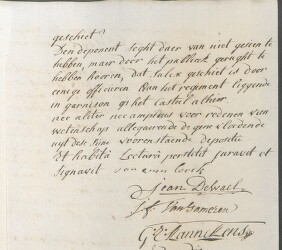 geschiet?
Den deponent seght daer van niet gesien te
hebben, maer door het publieck gerught te
hebben hooren, dat sulcx geschiet is door
eenige officieren van het regiment liggende
in garnison op het Casteel alhier.
nec aliter nec amplius voor redenen van
wetentschap allegeerende de gene
uyt dese sijne voorenstaende depositie
Et habitâ Lecturâ perstitit juravit et
Signavit
Jean Dewael